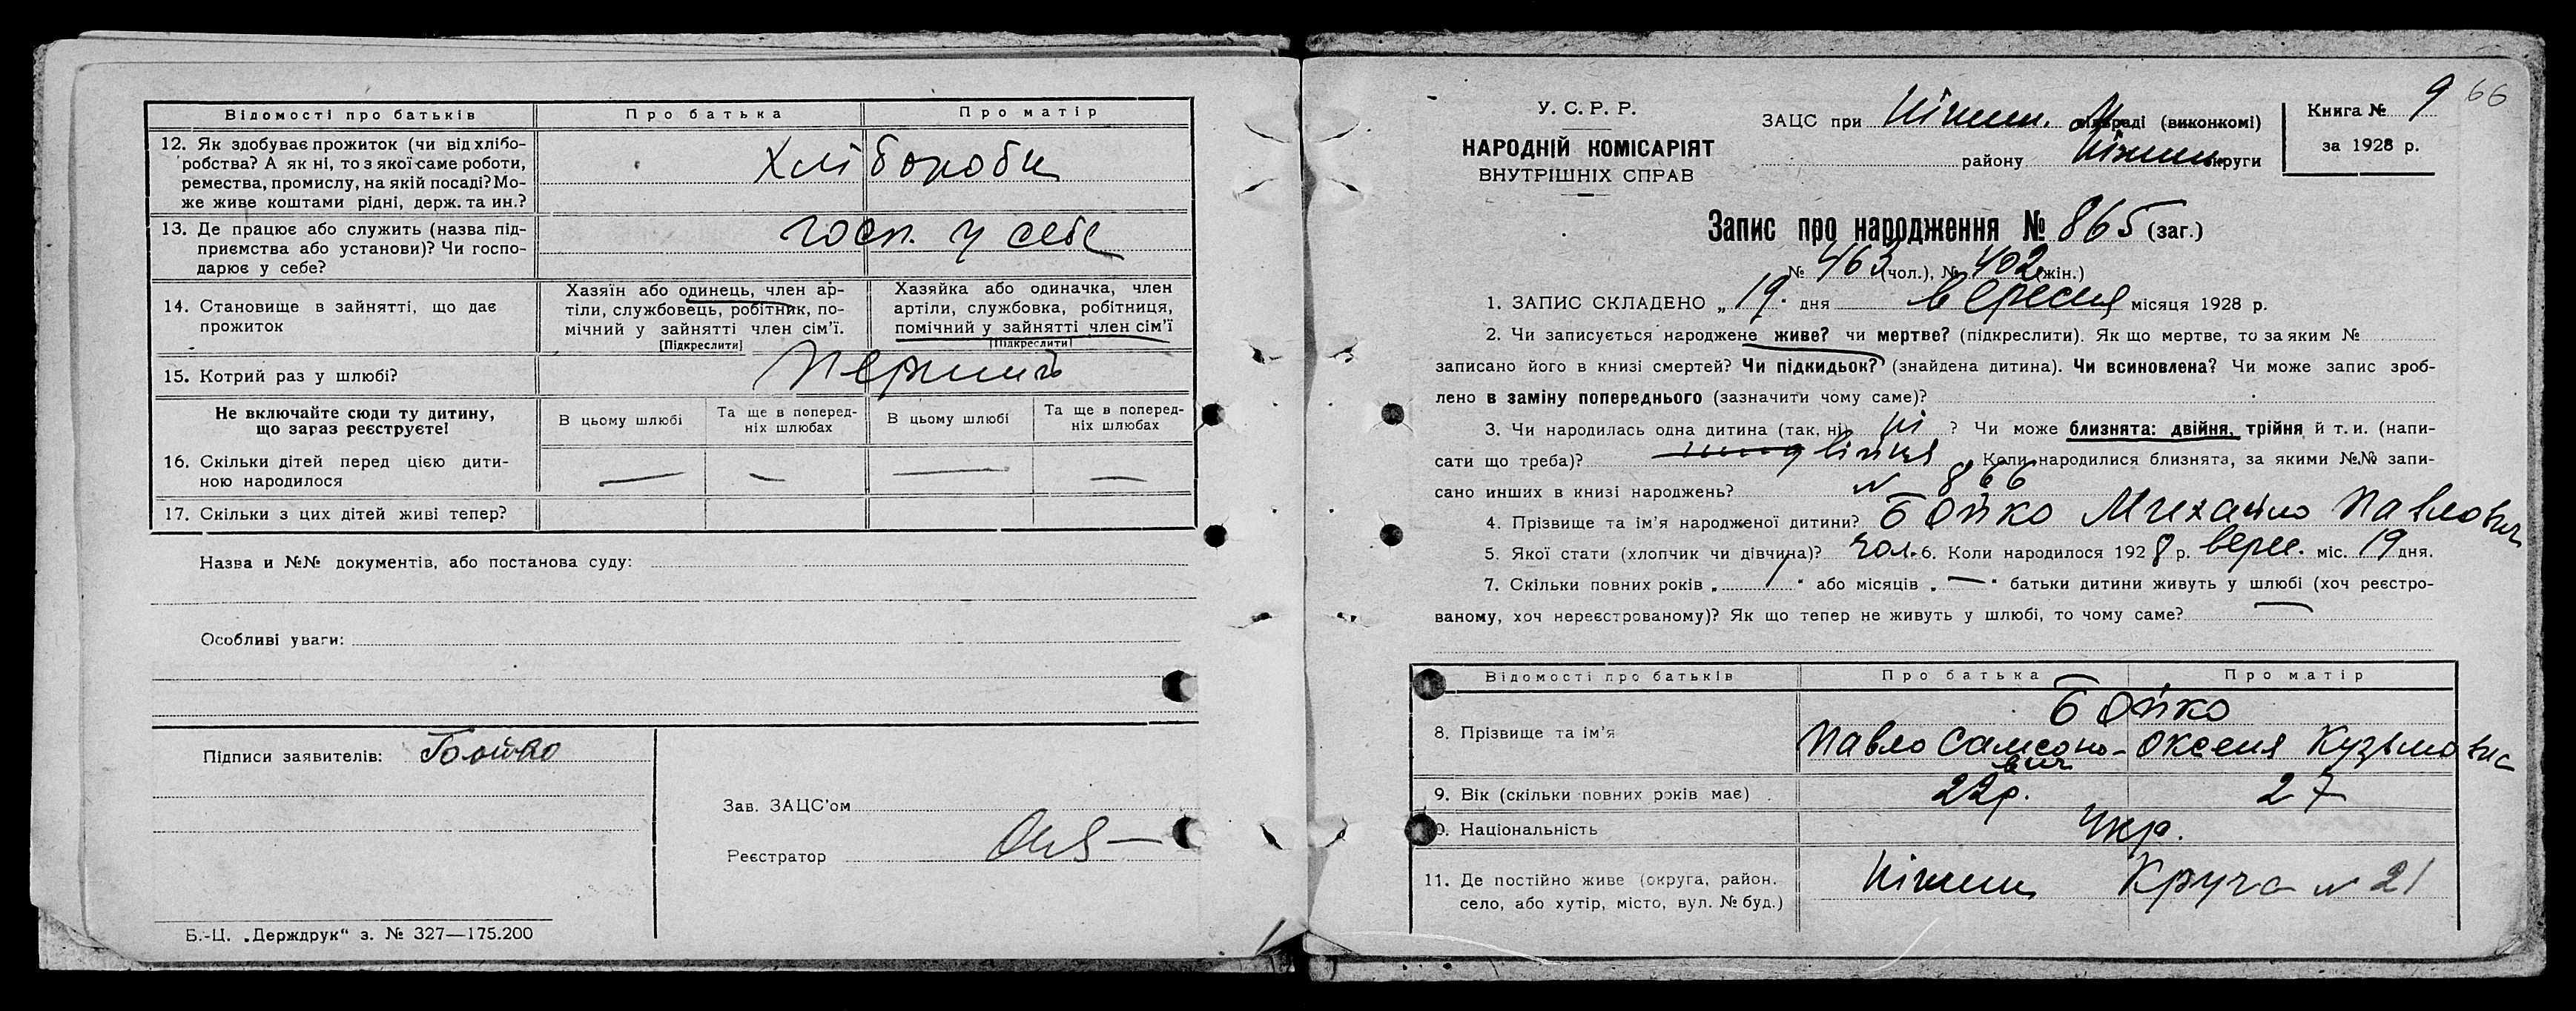 Відомості про батьків Про батька Про матір
12. Як здобуває прожиток (чи від хлібо-
робства? А як ні, то з якої саме роботи,
ремества, промислу, на якій посаді? Мо-
же живе коштами рідні, держ. та ин.?
Хлібороби
13. Де працює або служить (назва під-
приємства або установи)? Чи госпо-
дарює у себе?
госп. у себе
14. Становище в зайнятті, що дає
прожиток
Хазяїн або одинець, член ар-
тіли, службовець, робітник, по-
мічний у зайнятті член сім'ї.
[Підкреслити]
Хазяйка або одиначка, член
артіли, службовка, робітниця,
помічний у зайнятті член сім'ї
[Підкреслити]
15. Котрий раз у шлюбі?
Не включайте сюди ту дитину,
що зараз реєструєте!
В цьому шлюбі
Та ще в поперед-
ніх шлюбах
В цьому шлюбі
Та ще в поперед-
ніх шлюбах
16. Скільки дітей перед цією дити-
ною народилося
— — — —
17. Скільки з цих дітей живі тепер?
Назва и №№ документів, або постанова суду:
Особливі уваги:
Підписи заявителів: Бойко
Зав. ЗАЦС'ом
Реєстратор
Б.-Ц. „Держдрук" з. № 327—175.200
У. С. Р. Р.
НАРОДНІЙ КОМІСАРІЯТ
ВНУТРІШНІХ СПРАВ
ЗАЦС при Ніжин. М сільраді (виконкомі)
району Ніжин. округи
Книга № 9
за 1928 р.
66
Запис про народження № 865 (заг.)
№ 463 (чол.), № 402 (жін.)
1. ЗАПИС СКЛАДЕНО „ 19. дня вересня місяця 1928 р.
2. Чи записується народжене живе? чи мертве? (підкреслити). Як що мертве, то за яким №
записано його в книзі смертей? Чи підкидьок? (знайдена дитина). Чи всиновлена? Чи може запис зроб-
лено в заміну попереднього (зазначити чому саме)?
3. Чи народилась одна дитина (так, ні) ні ? Чи може близнята: двійня, трійня й т. и. (напи-
сати що треба)? двійня Коли народилися близнята, за якими №№ запи-
сано инших в книзі народжень? № 866
4. Прізвище та ім'я народженої дитини? Бойко Михайло Павлович
5. Якої стати (хлопчик чи дівчина)? чол. 6. Коли народилося 1928 р. верес. міс. 19 дня.
7. Скільки повних років „ 1 " або місяців „ — " батьки дитини живуть у шлюбі (хоч реєстро-
ваному, хоч нереєстрованому)? Як що тепер не живуть у шлюбі, то чому саме? —
Відомості про батьків Про батька Про матір
8. Прізвище та ім'я
Бойко
Павло Самсоно-
вич
Оксеня Кузьмовна
9. Вік (скільки повних років має) 22р. 27
10. Національність Укр.
11. Де постійно живе (округа, район.
село, або хутір, місто, вул. № буд.)
Ніжин Круча № 21